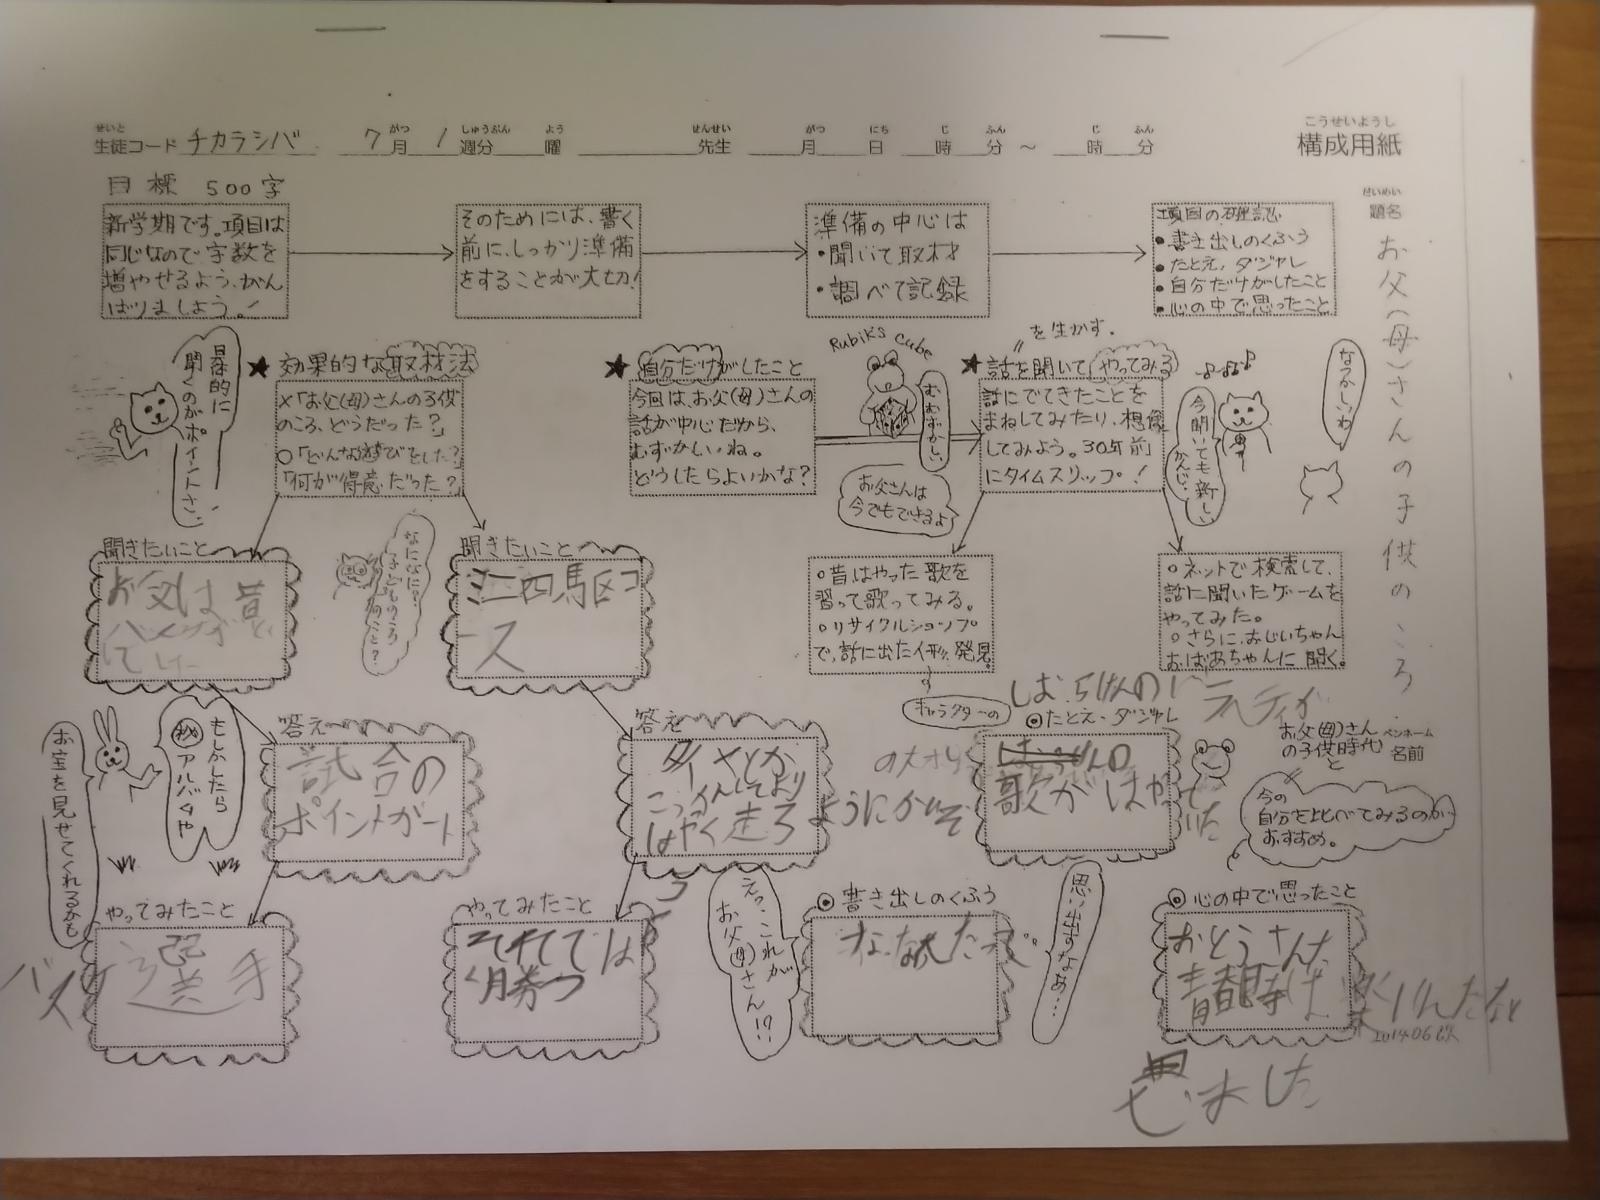 せいと がつ しゅうぶん よう せんせい がつ にち じ ふん じ ふん
生徒コード チカラシバ 7月 1週分 曜 先生 月 日 時 分 ～ 時 分
こうせいようし
構成用紙
目標 500字
だいめい
題名
お父(母)さんの子供のころ
新学期です。項目は
同じなので字数を
増やせるよう、がん
ばりましょう。!
そのためには、書く
前に、しっかり準備
をすることが大切!
準備の中心は
・聞いて取材
・調べて記録
項目の確認
・書き出しのくふう
・たとえ、ダジャレ
・自分だけがしたこと
・心の中で思ったこと
具体的に
聞くのがポイントさ。
★効果的な取材法
×「お父(母)さんの子供
のころ、どうだった?」
○「どんな遊びをした?」
「何が得意だった?」
★自分だけがしたこと
今回は、お父(母)さんの
話が中心だから、
むずかしいね。
どうしたらよいかな?
Rubik's cube
むむずかしい
お父さんは
今でもできるよ
を生かす。
★話を聞いてやってみる
話にでてきたことを
まねしてみたり、想像
してみよう。30年前
にタイムスリップ!
今聞いても新しい
かんじ。
なつかしいわ
聞きたいこと
お父は昔
なになに?
子どものころ
のこと?
聞きたいこと
ミニ四駆コ
ース
○昔はやった歌を
習って歌ってみる。
○リサイクルショップ
で、話に出た人形発見。
キャラクターの
○ネットで検索して、
話に聞いたゲームを
やってみた。
○さらに、おじいちゃん
おばあちゃんに聞く。
お宝を見せてくれるかも
もしかしたら
㊙アルバムや
答え
試合の
ポイントガード
答え
タイヤとか
はやく走る
ように
◎たとえ・ダジャレ
歌がはやっていた
お父(母)さん
の子供時代と
ペンネーム
名前
今の
自分を比べてみるのが
おすすめ。
やってみたこと
バスケ選手
やってみたこと
それでは
勝つ
えっ、これが
お父(母)さん!?
◎書き出しのくふう
思い出すなあ…
◎心の中で思ったこと
おとうさんた
青春時は
思いました